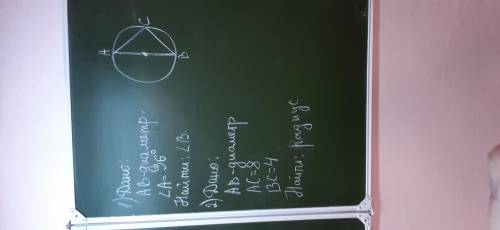 A
C
B
1) Дано:
AB-диаметр.
∠A=36°
Найти: ∠B.
2) Дано:
AB-диаметр
AC=8
BC=4
Найти: радиус